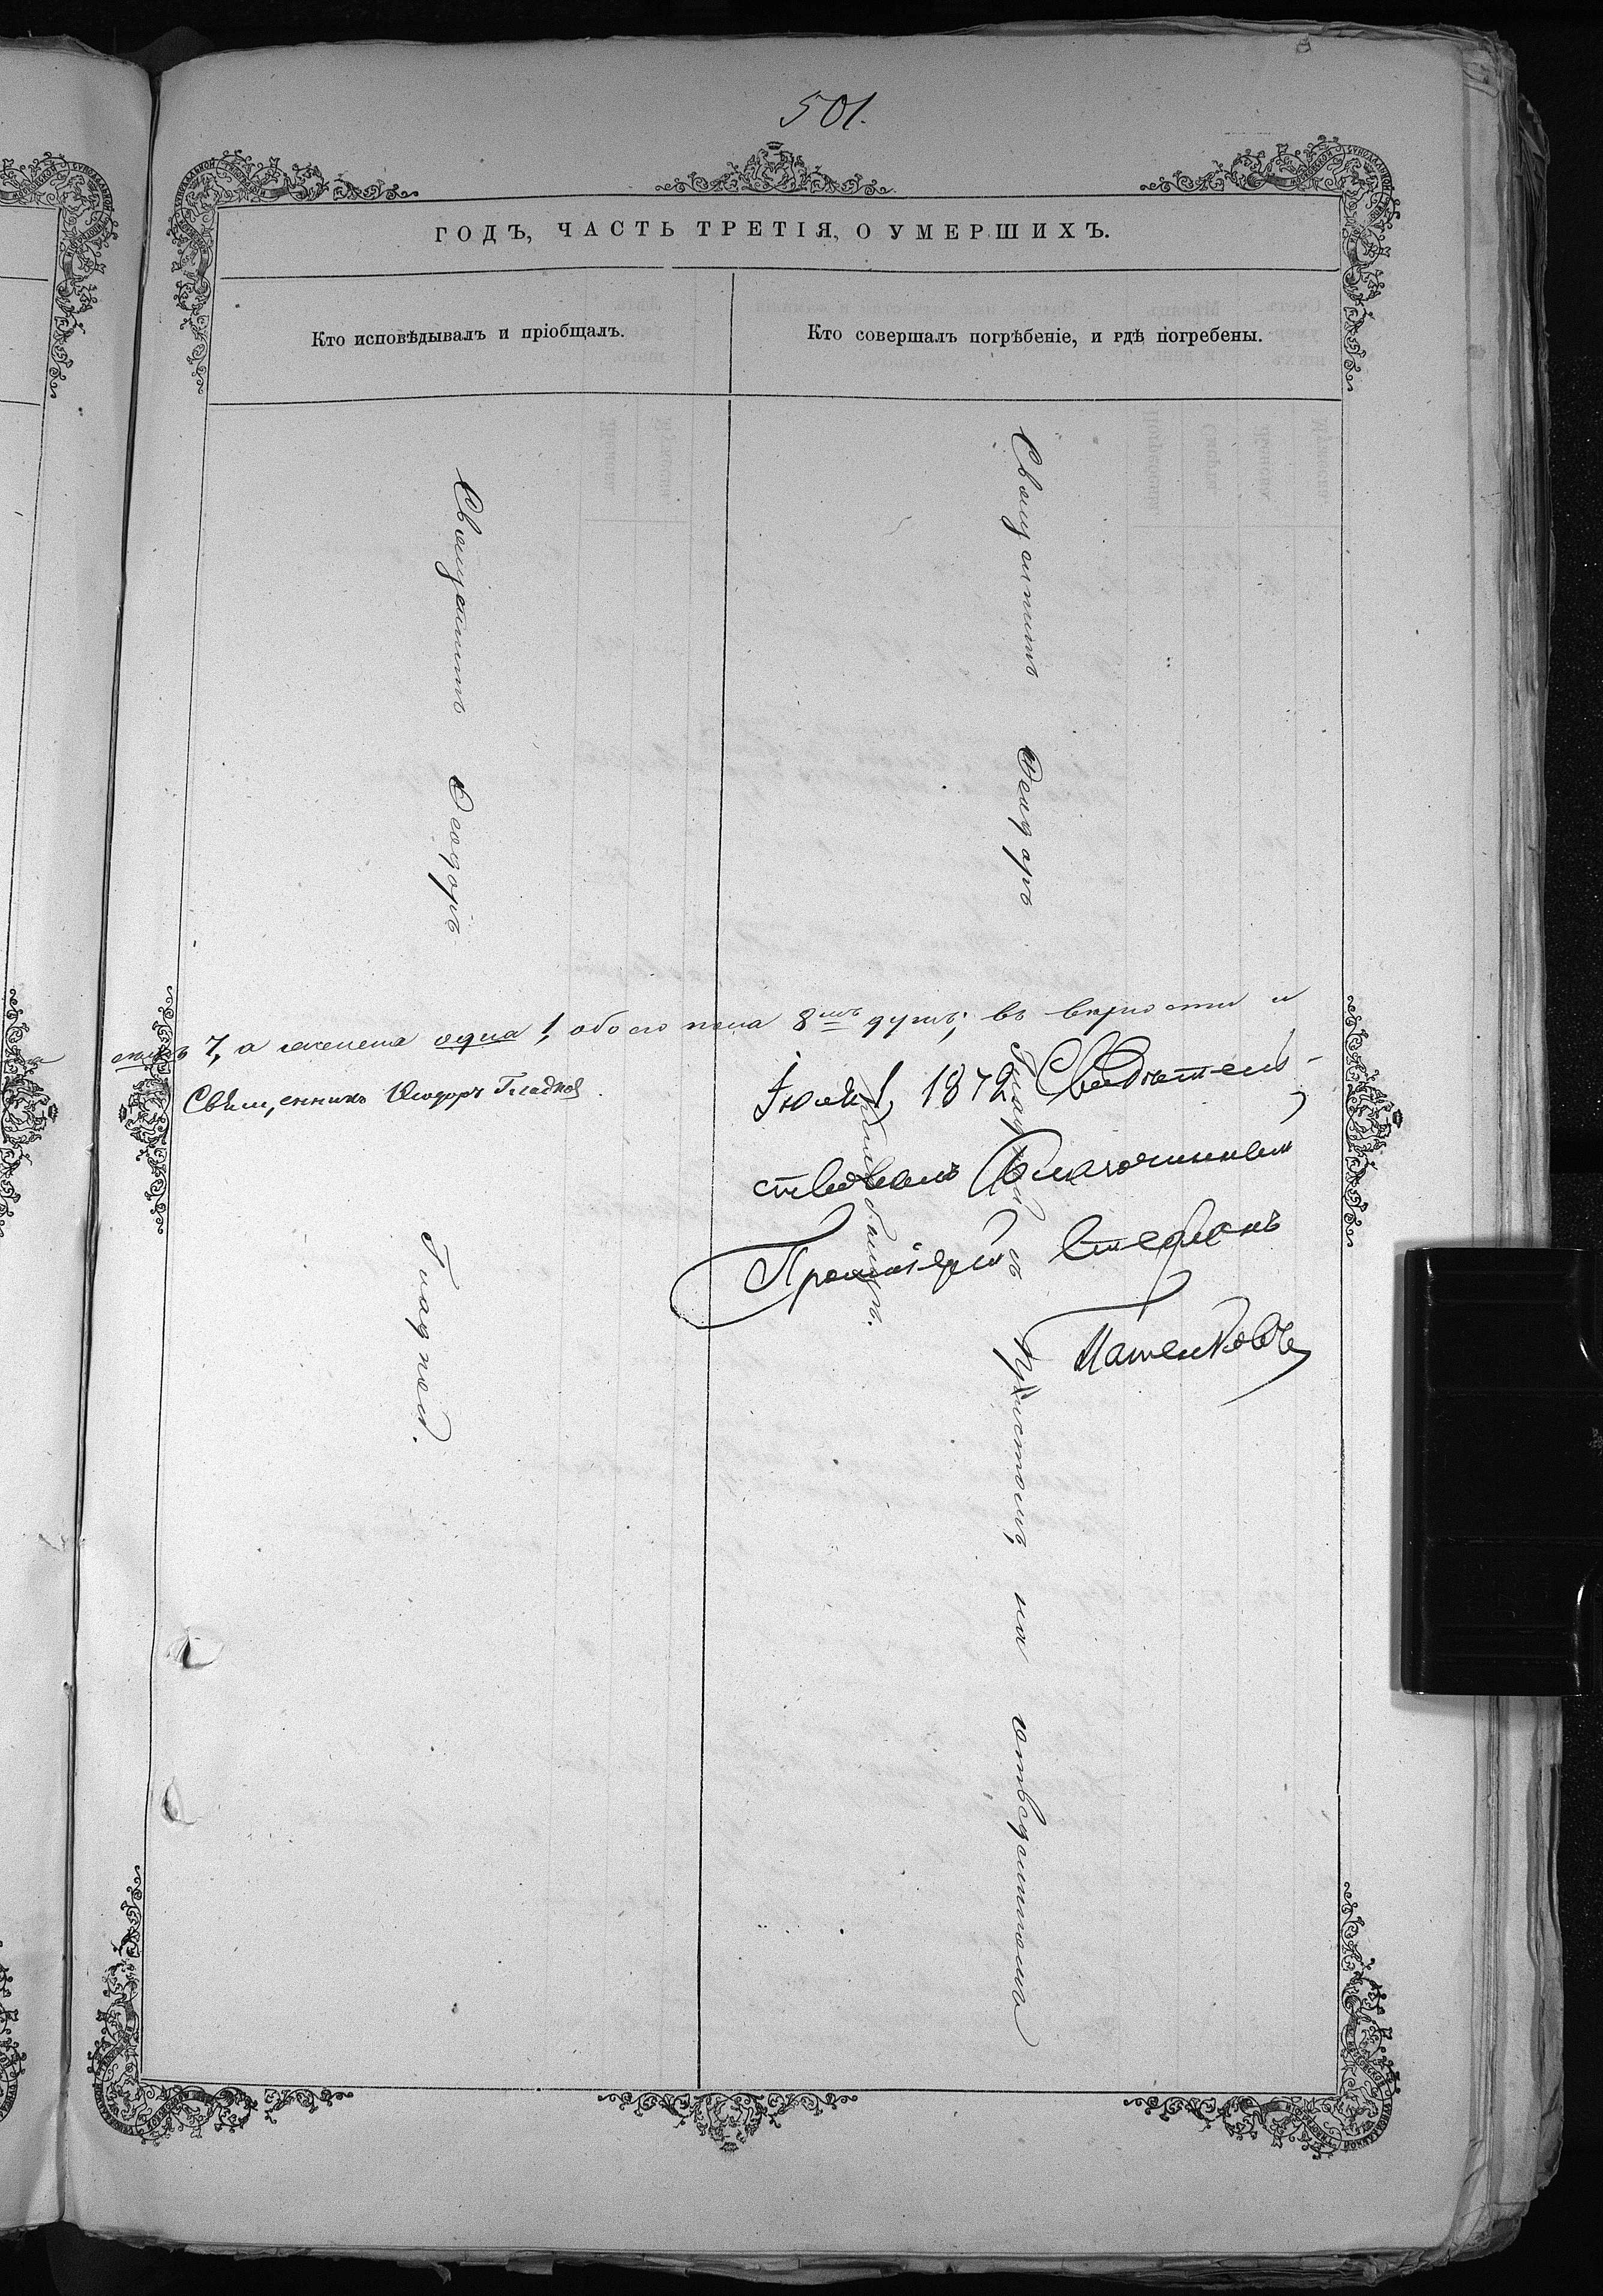 501.
ГОДЪ, ЧАСТЬ ТРЕТІЯ, О УМЕРШИХЪ.
Кто исповѣдывалъ и пріобщалъ.
Кто совершалъ погребеніе, и гдѣ погребены.
Священникъ Ѳеодоръ Гладкой.
Священникъ Ѳеодоръ Гладкой съ причтомъ на отведенномъ
кладбищѣ.
7, а женска одна 1, обоего пола 8мь душъ; въ верности и
Священникъ Ѳеодоръ Гладкой
Іюля 1, 1872 Свидѣтель-
ствовалъ Благочинный
Протоіерей Стефанъ